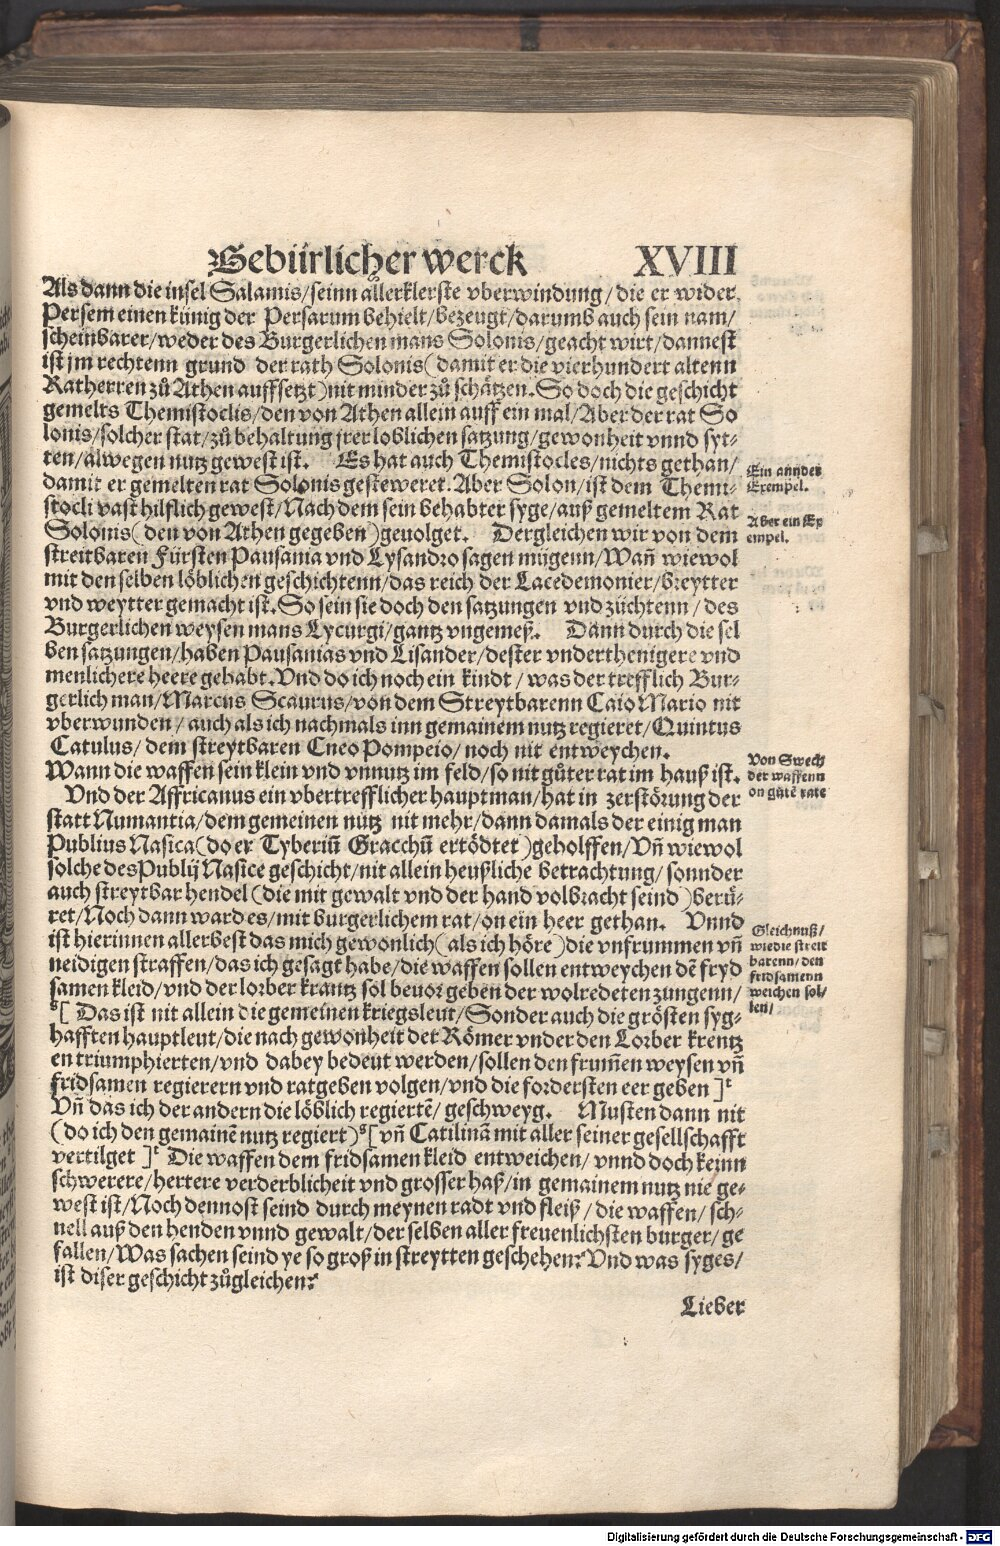 Gebürlicher werck XVIII
Als dann die insel Salamis/seinn allerklerste vberwindung/die er wider
Persem einen künig der Persarum behielt/bezeugt/darumb auch sein nam/
scheinbarer/weder des Burgerlichen mans Solonis/geacht wirt/dannest
ist jm rechtenn grund der rath Solonis(damit er die vierhundert altenn
Ratherren zů Athen auffsetzt)nit minder zů schätzen. So doch die geschicht
gemelts Themistoclis/den von Athen allein auff ein mal/Aber der rat So
lonis/solcher stat/zů behaltung jrer loblichen satzung/gewonheit vnnd syt-
ten/alwegen nutz gewest ist. Es hat auch Themistocles/nichts gethan/
damit er gemelten rat Solonis gesteweret. Aber Solon/ist dem Themi-
stocli vast hilflich gewest/Nach dem sein behabter syge/auß gemeltem Rat
Solonis(den von Athen gegeben)geuolget. Dergleichen wir von dem
streitbaren Fürsten Pausania vnd Lysandro sagen mügenn/Wañ wiewol
mit den selben löblichen geschichtenn/das reich der Lacedemonier/breytter
vnd weytter gemacht ist. So sein sie doch den satzungen vnd züchtenn/des
Burgerlichen weysen mans Lycurgi/gantz vngemeß. Dann durch die sel
ben satzungen/haben Pausanias vnd Lisander/dester vnderthenigere vnd
menlichere heere gehabt. Vnd do ich noch ein kindt/was der trefflich Bur-
gerlich man/Marcus Scaurus/von dem Streytbarenn Caio Mario nit
vberwunden/auch als ich nachmals inn gemainem nutz regieret/Quintus
Catulus/dem streytbaren Cneo Pompeio/noch nit entweychen.
Wann die waffen sein klein vnd vnnutz im feld/so nit gůter rat im hauß ist.
Vnd der Affricanus ein vbertrefflicher hauptman/hat in zerstörung der
statt Numantia/dem gemeinen nutz nit mehr/dann damals der einig man
Publius Nasica(do er Tyberiū Gracchū ertödtet)geholffen/Vñ wiewol
solche des Publij Nasice geschicht/nit allein heußliche betrachtung/sonnder
auch streytbar hendel(die mit gewalt vnd der hand volbracht seind)berü-
ret/Noch dann ward es/mit burgerlichem rat/on ein heer gethan. Vnnd
ist hierinnen allerbest das mich gewonlich(als ich höre)die vnfrummen vñ
neidigen straffen/das ich gesagt habe/die waffen sollen entweychen dē fryd
samen kleid/vnd der lorber krantz sol beuor geben der wolredeten zungenn/
[ Das ist nit allein die gemeinen kriegsleut/Sonder auch die grösten syg-
hafften hauptleut/die nach gewonheit der Römer vnder den Lorber krentz
en triumphierten/vnd dabey bedeut werden/sollen den frum̄en weysen vñ
fridsamen regierern vnd ratgeben volgen/vnd die fordersten eer geben ]
Vñ das ich der andern die löblich regiertē/geschweyg. Musten dann nit
(do ich den gemainē nutz regiert)[vñ Catilinā mit aller seiner gesellschafft
vertilget ] Die waffen dem fridsamen kleid entweichen/vnnd doch keinn
schwerere/hertere verderblicheit vnd grosser haß/in gemainem nutz nie ge-
west ist/Noch dennost seind durch meynen radt vnd fleiß/die waffen/sch-
nell auß den henden vnnd gewalt/der selben aller freuenlichsten burger/ge
fallen/Was sachen seind ye so groß in streytten geschehen? Vnd was syges/
ist diser geschicht zůgleichen?
Lieber
Ein annder
Exempel.
Aber ein Ex
empel.
Von Swech
der waffenn
on gůtē rate
Gleichnuß/
wie die streit
barenn/den
fridsamenn
weichen sol/
len/
Digitalisierung gefördert durch die Deutsche Forschungsgemeinschaft - DFG